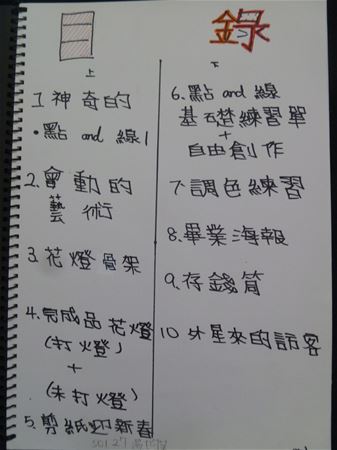 目 錄
上
1.神奇的
•點 and 線1
2.會動的
藝術
3.花燈骨架
4.完成品花燈
(打燈)
+
(未打燈)
5.剪紙迎新春
下
6.點 and 線
基礎練習單
+
自由創作
7.調色練習
8.畢業海報
9.存錢筒
10外星來的訪客